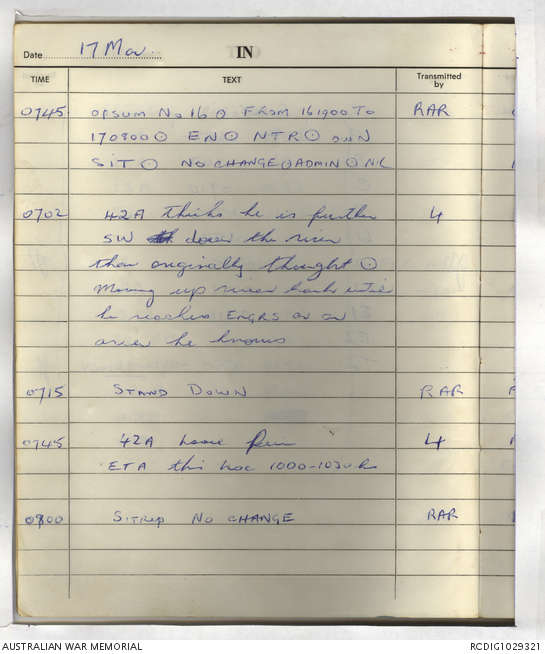 Date 17 Mar. IN
TIME TEXT Transmitted by
0745 OPSUM No 16 ⊙ FROM 161900 To RAR
170800 ⊙ EN ⊙ NTR ⊙ OWN
SIT ⊙ NO CHANGE ⊙ ADMIN ⊙ NIL
0702 42A thinks he is further 4
SW down the river
than originally thought ⊙
Moving up river bank until
he reaches ENGRS or an
area he knows
0715 STAND DOWN RAR
0745 42A have 4
ETA this loc 1000-1030 h
0800 Sitrep NO CHANGE RAR
AUSTRALIAN WAR MEMORIAL RCDIG1029321